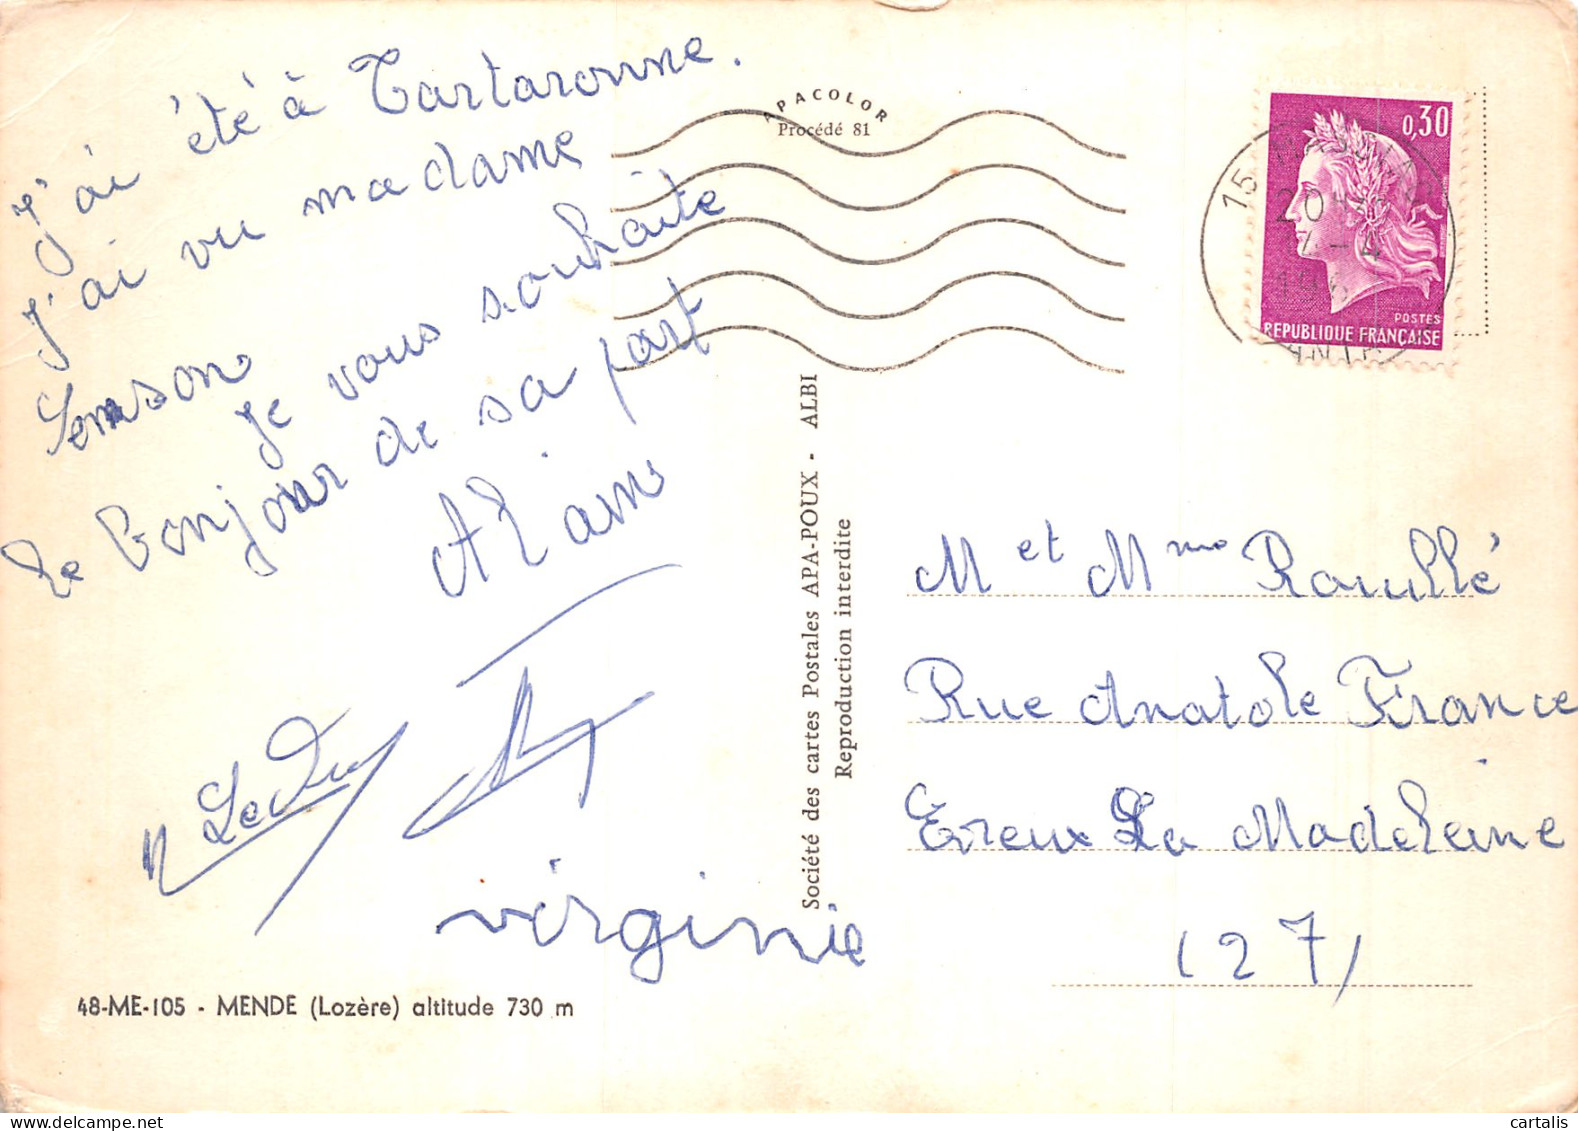 J'ai été à Tartaronne.
J'ai vu madame
Samson
Je vous souhaite
le bonjour de sa part
Alain
Ledru
virginie
48-ME-105 - MENDE (Lozère) altitude 730 m
APACOLOR
Procédé 81
Société des cartes Postales APA-POUX - ALBI
Reproduction interdite
0,30
POSTES
REPUBLIQUE FRANÇAISE
15
20
4
M et Mme Roullé
Rue Anatole France
Evreux La Madeleine
(27)
cartalis
delcampe.net